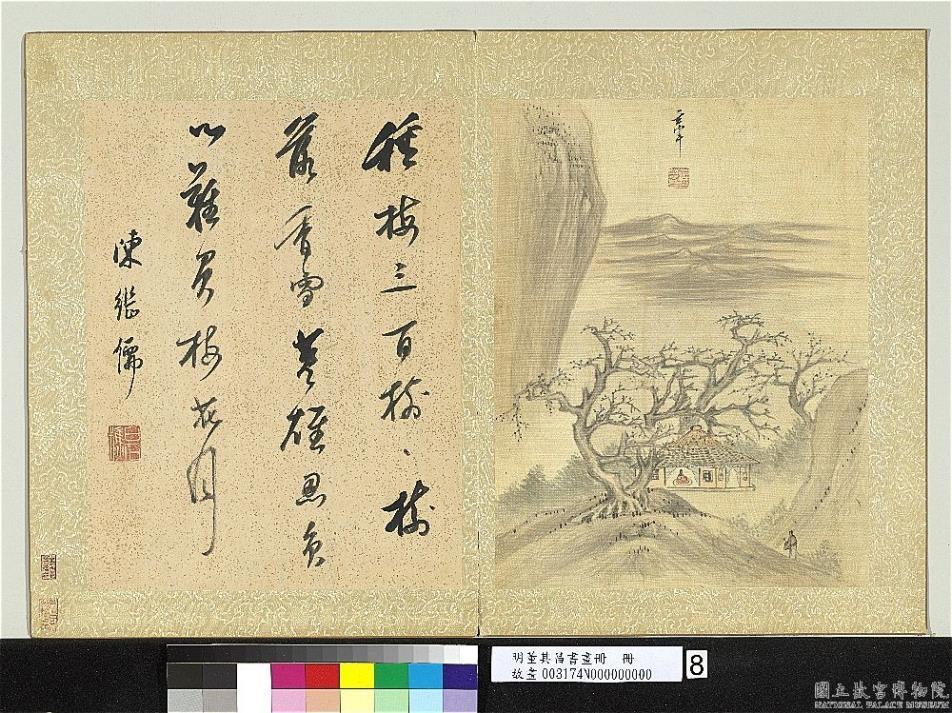 玄宰
種梅三百樹、樹
落香雪英雄負
心難梅花月
陳繼儒
明董其昌書畫冊 冊
故畫 003174N000000000
8
國立故宮博物院
NATIONAL PALACE MUSEUM